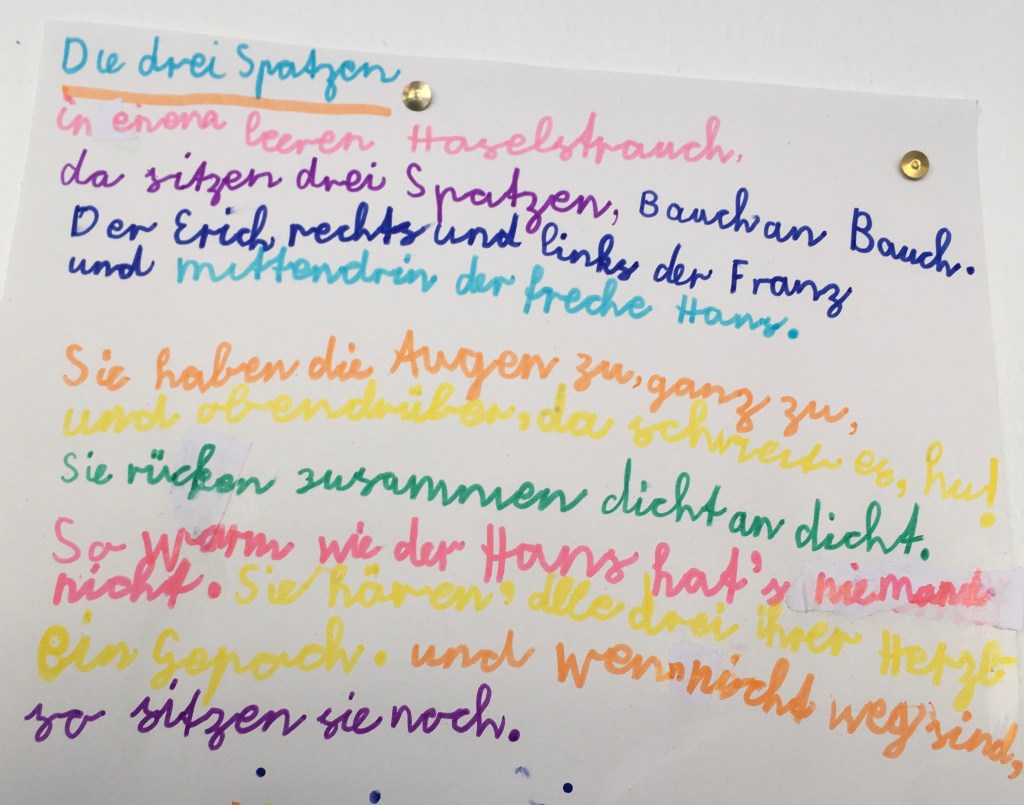 Die drei Spatzen
in einem leeren Haselstrauch,
da sitzen drei Spatzen, Bauch an Bauch.
Der Erich rechts und links der Franz
und mittendrin der freche Hans.
Sie haben die Augen zu, ganz zu,
und obendrüber, da schneit es, hu!
Sie rücken zusammen dicht an dicht.
So warm wie der Hans hat's niemand
nicht. Sie hören, alle drei ihrer Herzl
ein Gepoch. und wenn nicht weg sind,
so sitzen sie noch.